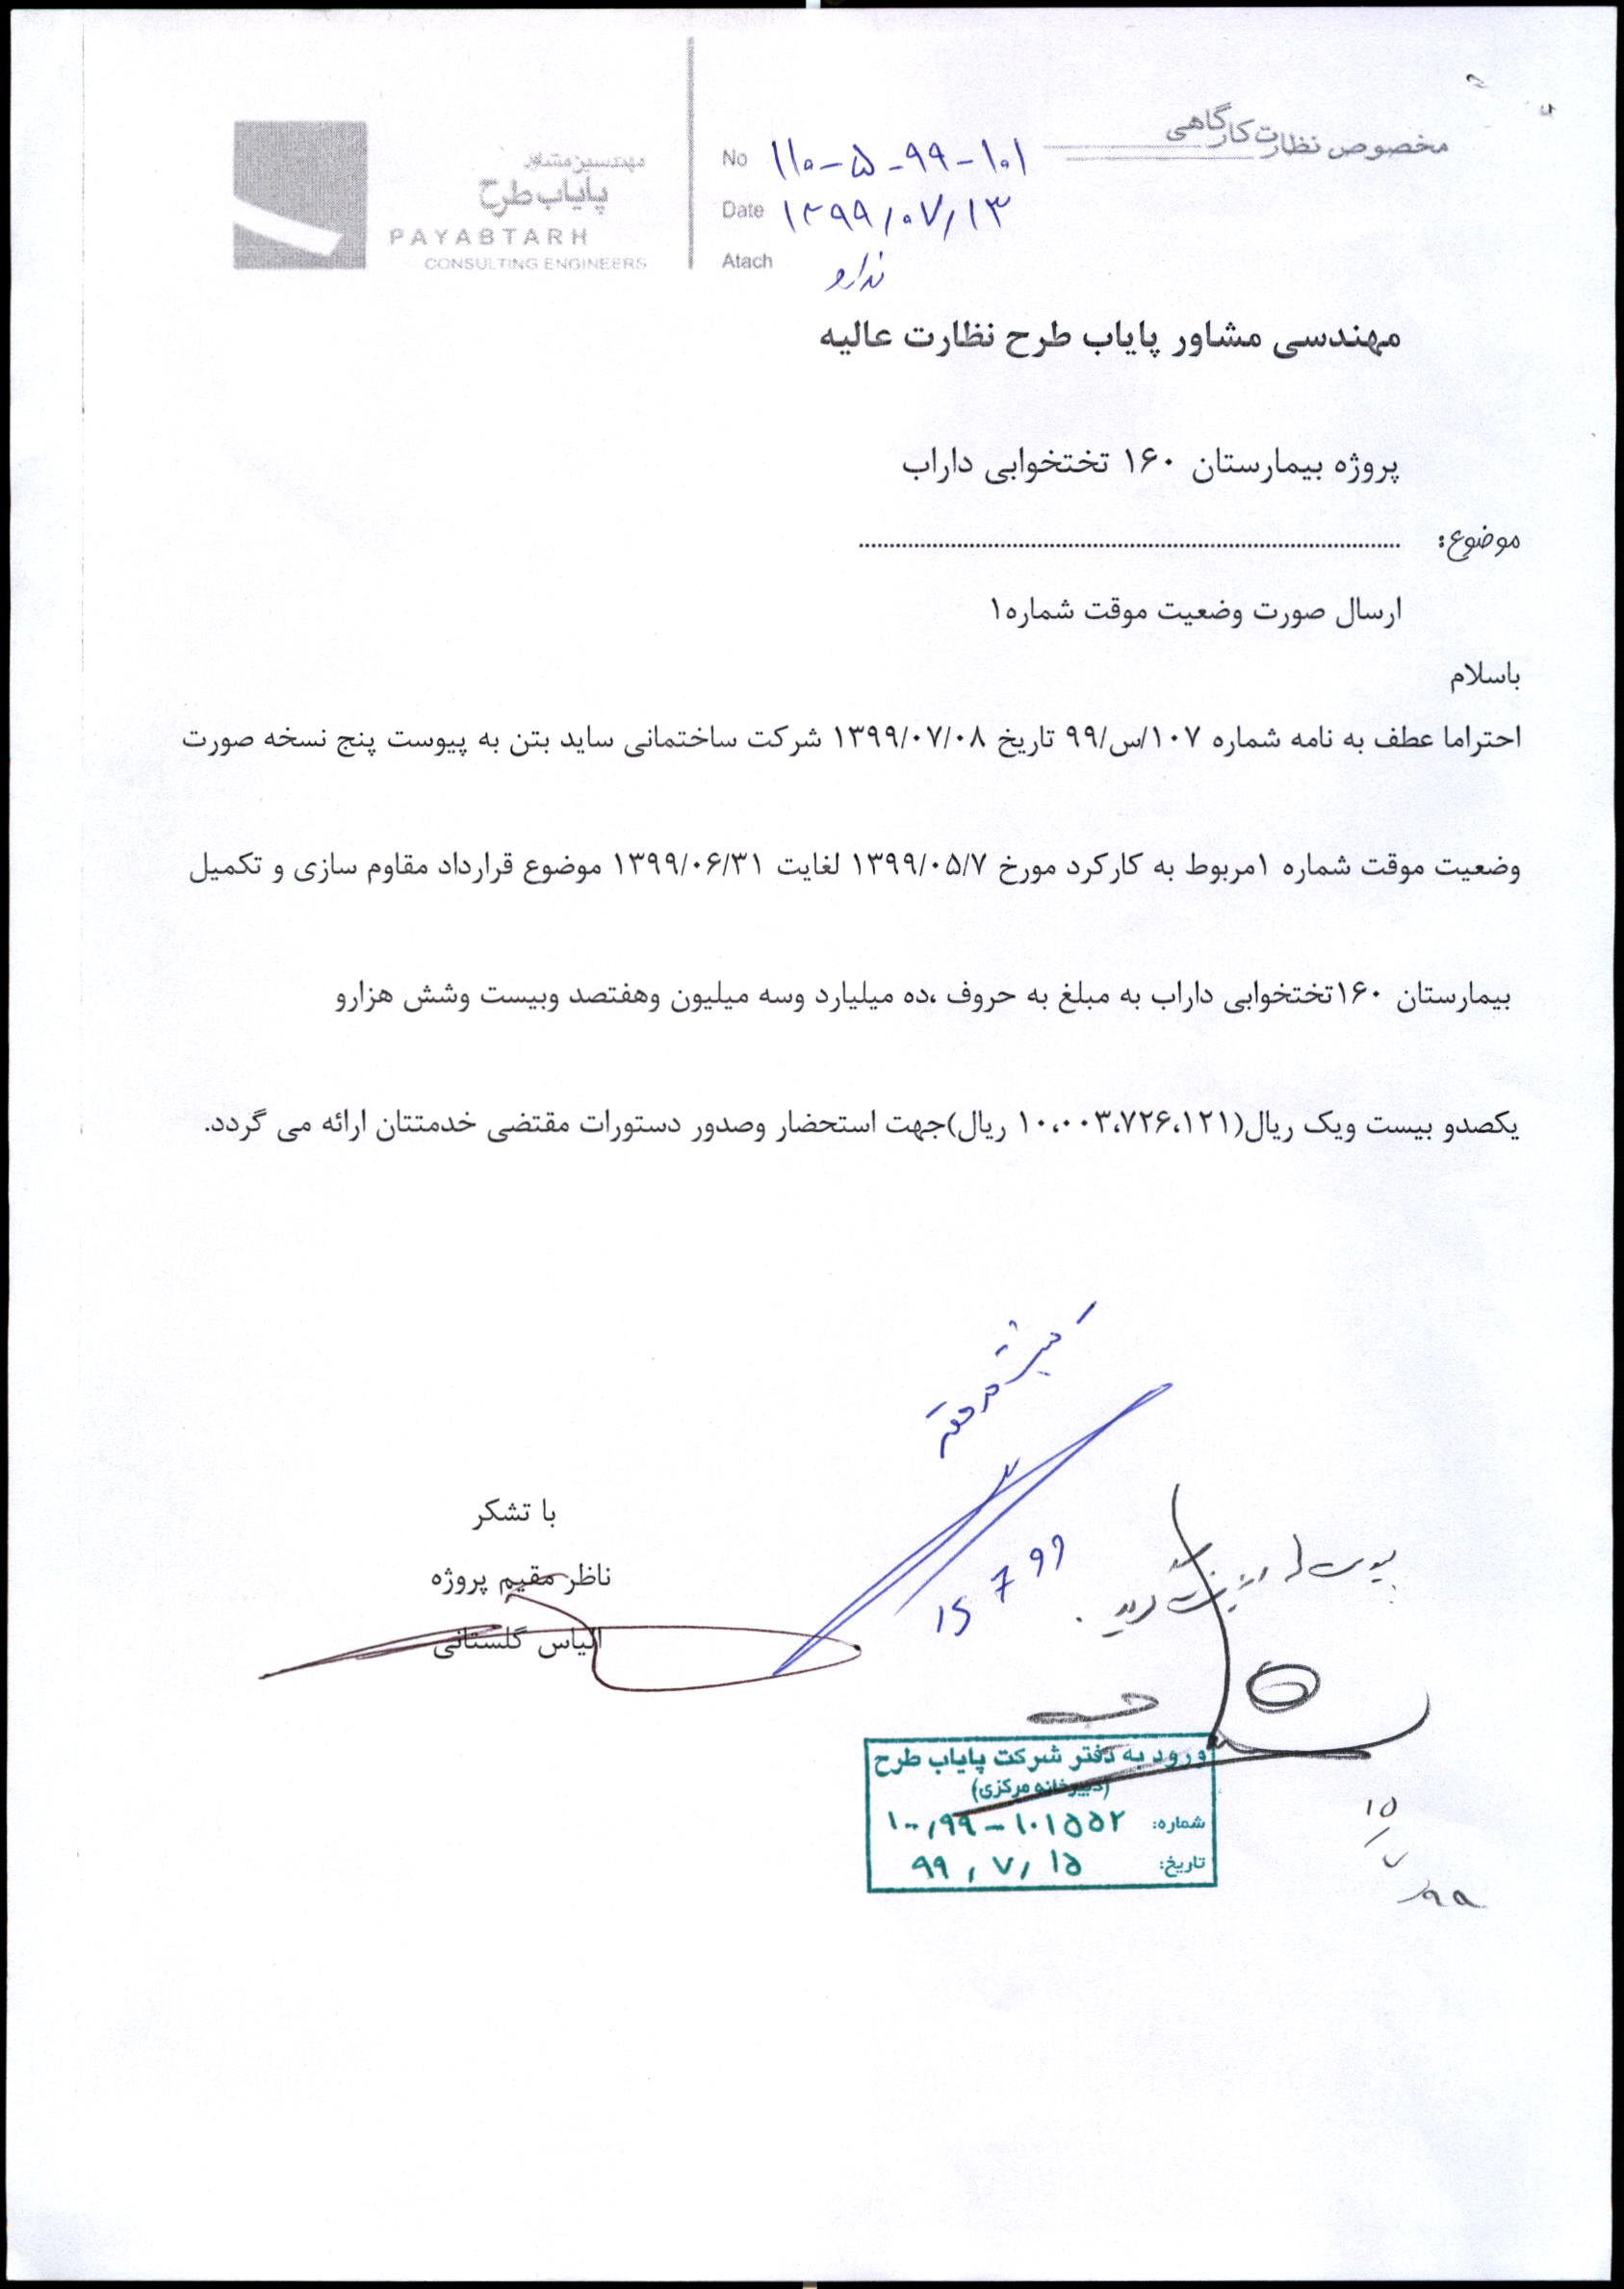 مخصوص نظارت کارگاهی
مهندسین مشاور
پایاب طرح
PAYABTARH
CONSULTING ENGINEERS
No ۱۱۰-۵-۹۹-۱۰۱
Date ۱۳۹۹/۰۷/۱۳
Atach ندارد
مهندسی مشاور پایاب طرح نظارت عالیه
پروژه بیمارستان ۱۶۰ تختخوابی داراب
موضوع: ..........................................................................................
ارسال صورت وضعیت موقت شماره۱
باسلام
احتراما عطف به نامه شماره ۱۰۷/س/۹۹ تاریخ ۱۳۹۹/۰۷/۰۸ شرکت ساختمانی ساید بتن به پیوست پنج نسخه صورت
وضعیت موقت شماره ۱مربوط به کارکرد مورخ ۱۳۹۹/۰۵/۷ لغایت ۱۳۹۹/۰۶/۳۱ موضوع قرارداد مقاوم سازی و تکمیل
بیمارستان ۱۶۰تختخوابی داراب به مبلغ به حروف ،ده میلیارد وسه میلیون وهفتصد وبیست وشش هزارو
یکصدو بیست ویک ریال(۱۰،۰۰۳،۷۲۶،۱۲۱ ریال)جهت استحضار وصدور دستورات مقتضی خدمتتان ارائه می گردد.
با تشکر
ناظر مقیم پروژه
الیاس گلستانی
۱۵ ۷ ۹۹
ورود به دفتر شرکت پایاب طرح
(دبیرخانه مرکزی)
شماره: ۱۰۰/۹۹-۱۰۱۵۵۲
تاریخ: ۹۹/۷/۱۵
۱۵
/۷
/۹۹